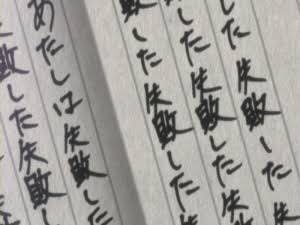 した失敗した失
した失敗した失
敗した失敗した失
あたしは失敗した
敗した失敗し